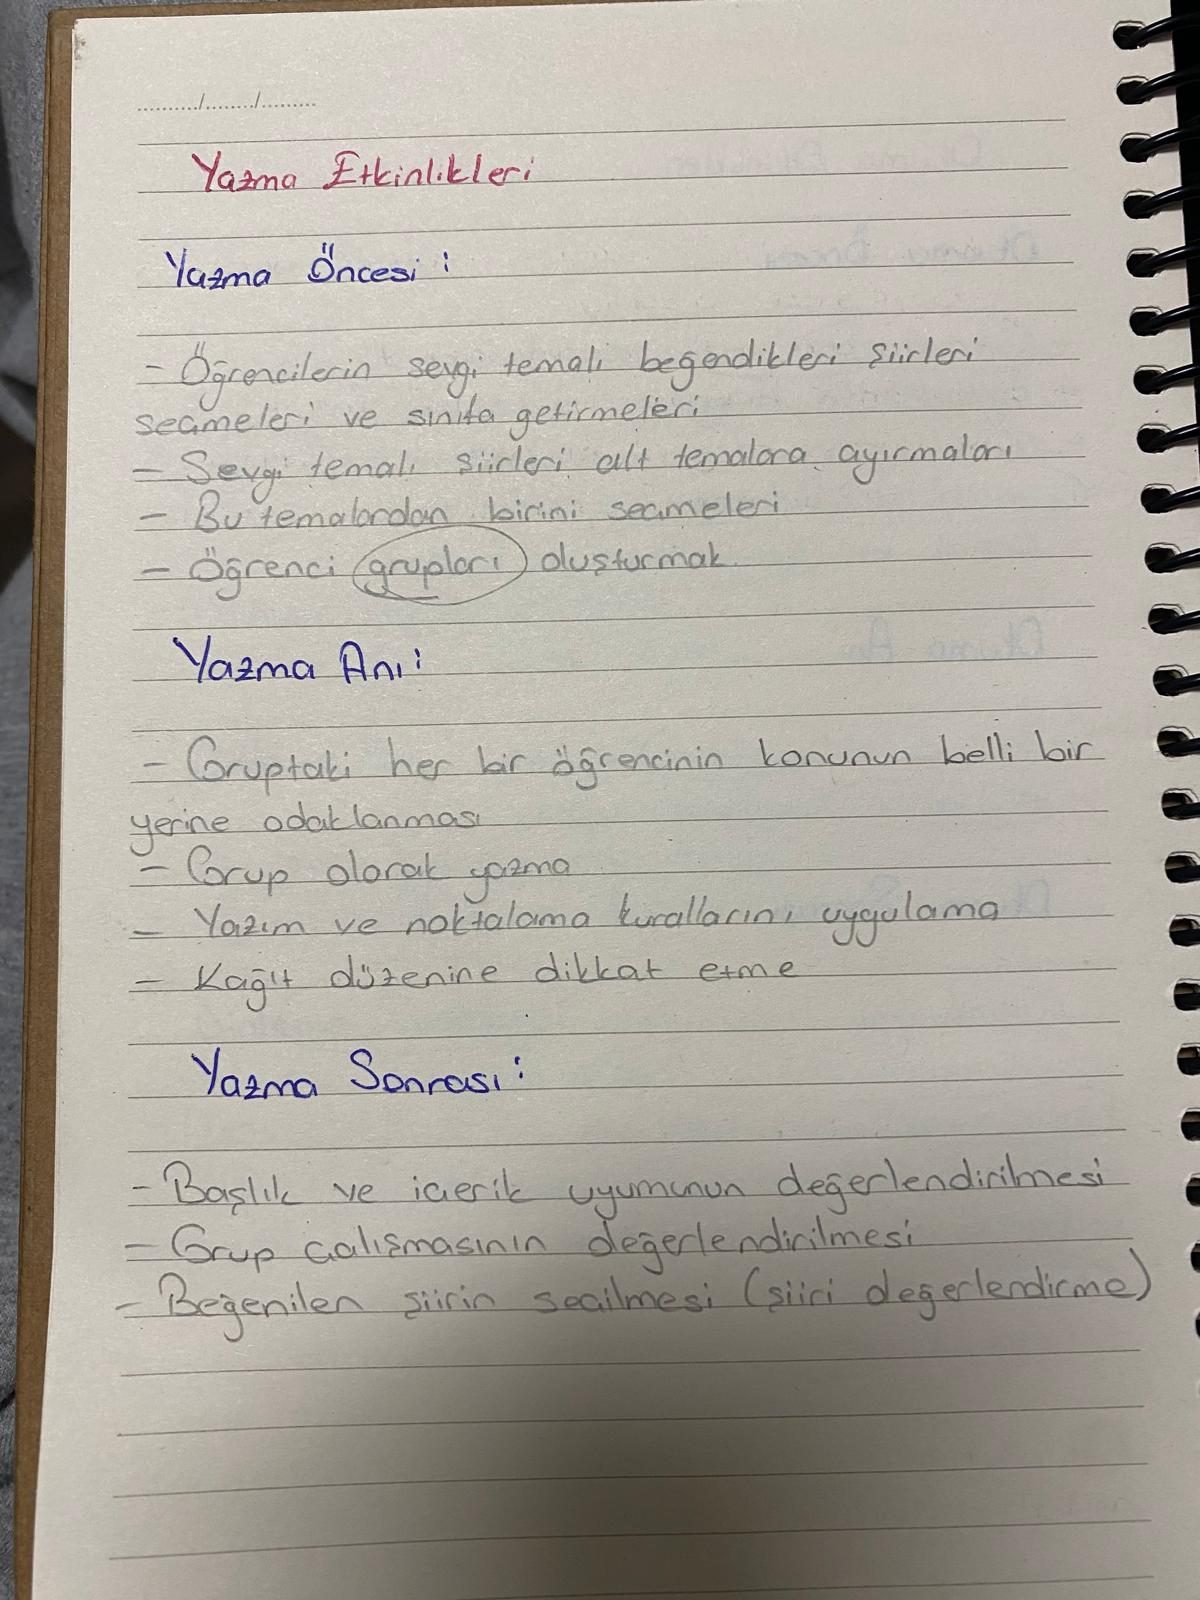 ........../......../.........
Yazma Etkinlikleri
Yazma Öncesi :
- Öğrencilerin sevgi temalı beğendikleri şiirleri
seçmeleri ve sınıfa getirmeleri
- Sevgi temalı şiirleri alt temalara ayırmaları
- Bu temalardan birini seçmeleri
- Öğrenci grupları oluşturmak.
Yazma Anı :
- Gruptaki her bir öğrencinin konunun belli bir
yerine odaklanması
- Grup olarak yazma
- Yazım ve noktalama kurallarını uygulama
- Kağıt düzenine dikkat etme
Yazma Sonrası :
- Başlık ve içerik uyumunun değerlendirilmesi
- Grup çalışmasının değerlendirilmesi
- Beğenilen şiirin seçilmesi (şiiri değerlendirme)